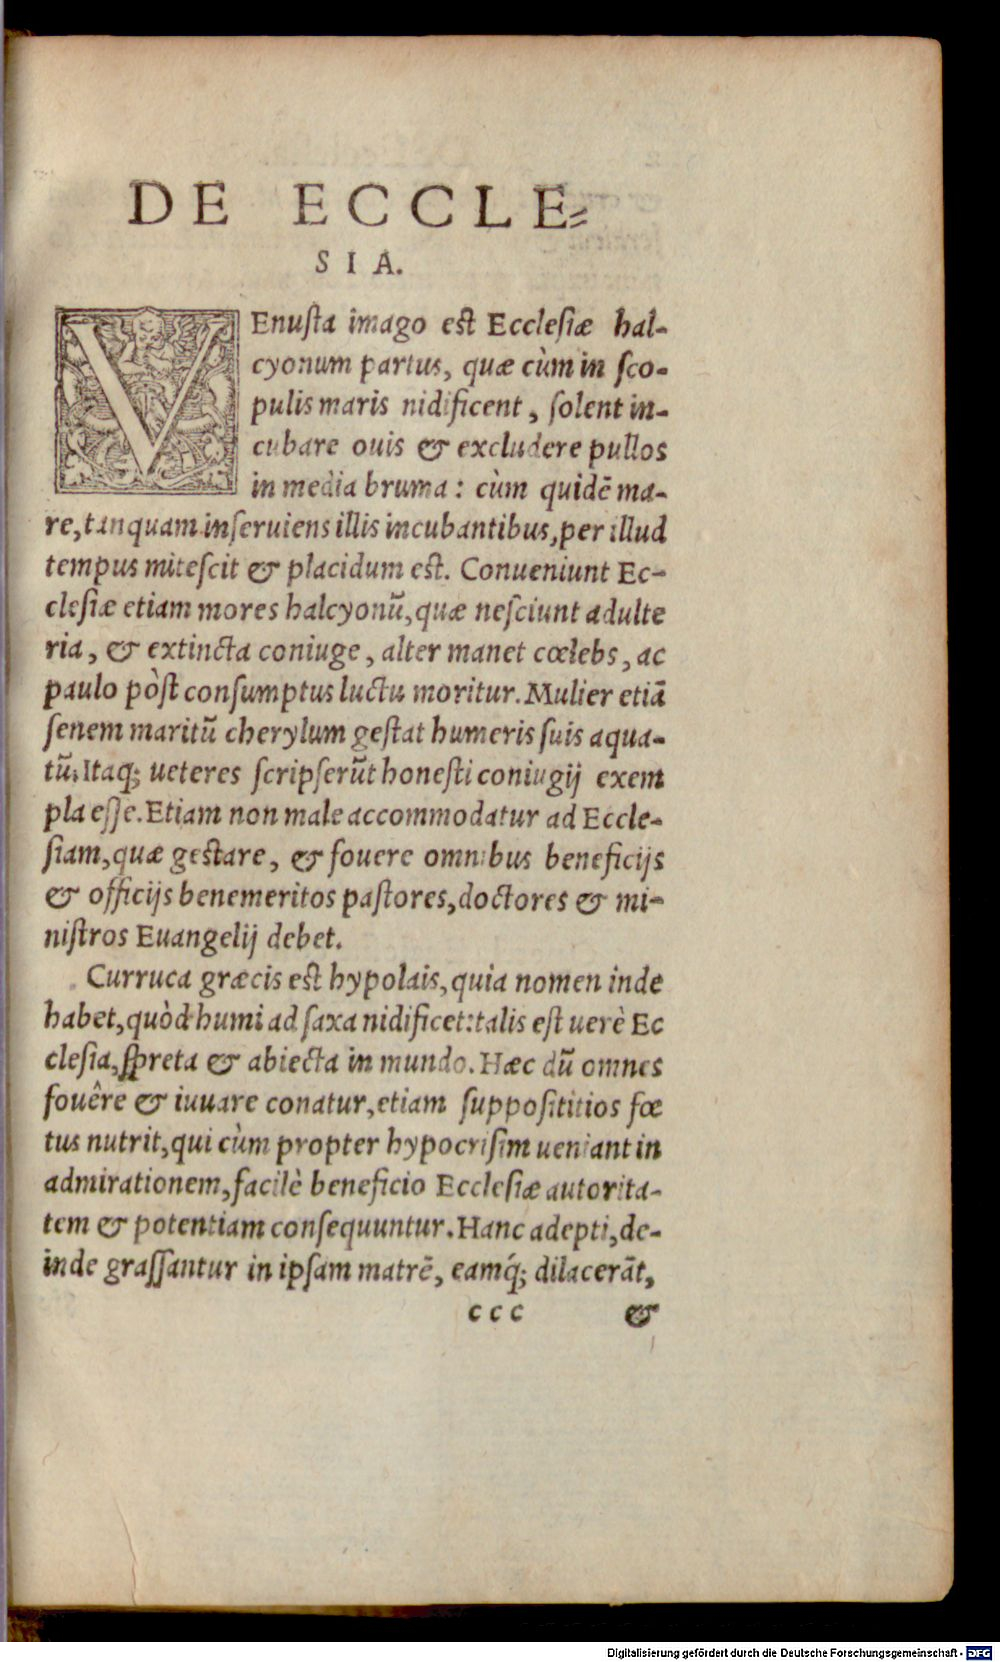 DE ECCLE⸗
SIA.
VEnuſta imago est Eccleſiæ hal-
cyonum partus, quæ cùm in ſco-
pulis maris nidificent, ſolent in-
cubare ouis & excludere pullos
in media bruma: cùm quidē ma-
re, tanquam inſeruiens illis incubantibus, per illud
tempus miteſcit & placidum est. Conueniunt Ec-
cleſiæ etiam mores halcyonū, quæ neſciunt adulte
ria, & extincta coniuge, alter manet cœlebs, ac
paulo pòſt conſumptus luctu moritur. Mulier etiā
ſenem maritū cherylum geſtat humeris ſuis aqua-
tū. Itaq; ueteres ſcripſerūt honeſti coniugij exem
pla eſſe. Etiam non male accommodatur ad Eccle-
ſiam, quæ gestare, & fouere omnibus beneficijs
& officijs benemeritos paſtores, doctores & mi-
niſtros Euangelij debet.
Curruca græcis est hypolais, quia nomen inde
habet, quòd humi ad ſaxa nidificet: talis eſt uerè Ec
cleſia, ſpreta & abiecta in mundo. Hæc dū omnes
fouêre & iuuare conatur, etiam ſuppoſititios fœ
tus nutrit, qui cùm propter hypocriſim ueniant in
admirationem, facilè beneficio Eccleſiæ autorita-
tem & potentiam conſequuntur. Hanc adepti, de-
inde graſſantur in ipſam matrē, eamq́; dilacerāt,
ccc &
Digitalisierung gefördert durch die Deutsche Forschungsgemeinschaft - DFG